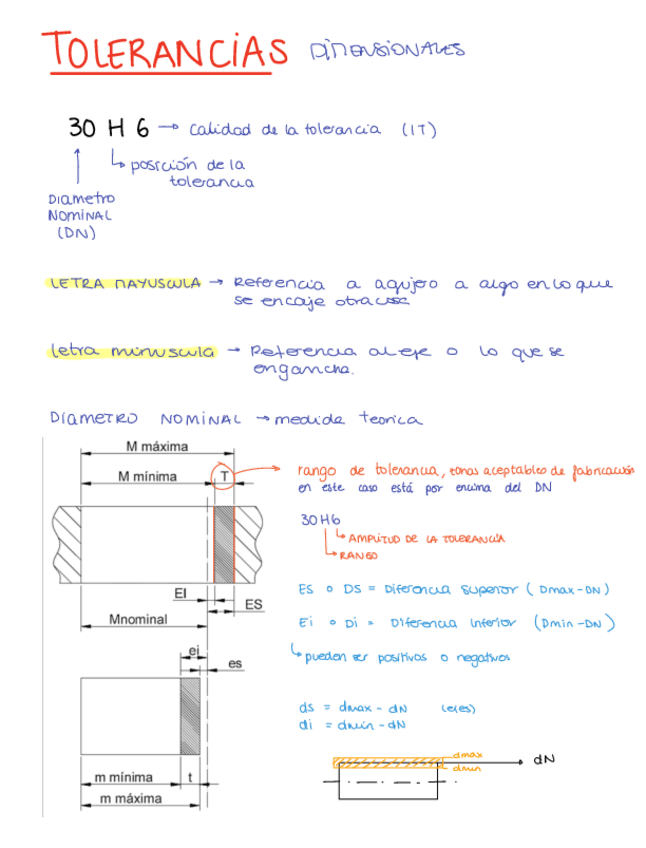 TOLERANCIAS DIMENSIONALES
30 H 6 → Calidad de la tolerancia (IT)
posición de la
tolerancia
DIAMETRO
NOMINAL
(DN)
LETRA MAYUSCULA → Referencia a agujero a algo en lo que
se encaje otra cosa
letra minuscula → Referencia al eje o lo que se
engancha.
DIAMETRO NOMINAL → medida teorica
M máxima
M mínima T
rango de tolerancia, zonas aceptables de fabricación
en este caso está por encima del DN
30H6
AMPLITUD DE LA TOLERANCIA
RANGO
EI
ES
Mnominal
ES o DS = Diferencia Superior (Dmax-DN)
Ei o Di = Diferencia Inferior (Dmin-DN)
pueden ser positivos o negativos
ei
es
ds = dmax - dN (ejes)
di = dmin - dN
m mínima t
m máxima
dmax
dmin
dN